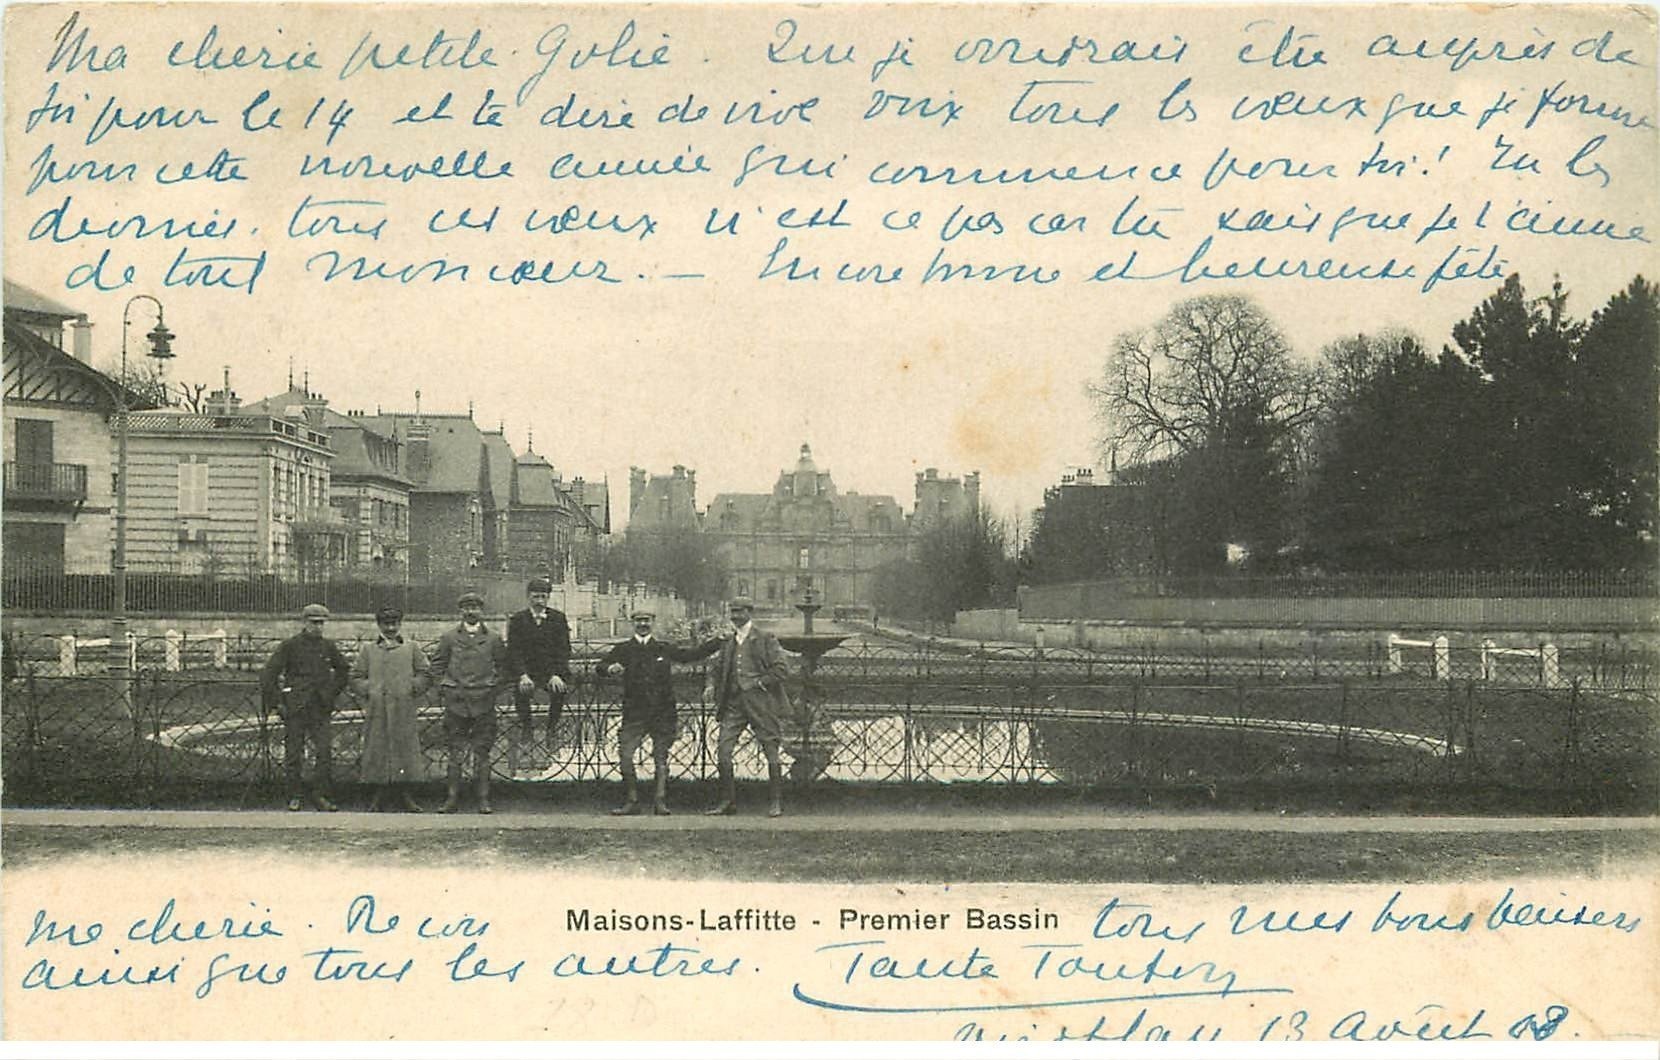 Ma cherie petite Golie. Que je voudrais être auprès de
toi pour le 14 et te dire de vive voix tous les vœux que je forme
pour cette nouvelle année qui commence pour toi! Tu les
devines. tous ces vœux n'est ce pas car tu sais que je t'aime
de tout mon cœur. — Encore bonne et heureuse fête
ma cherie. Recois tous mes bons baisers
Maisons-Laffitte - Premier Bassin
ainsi que tous les autres. Tante
13 Août 08.